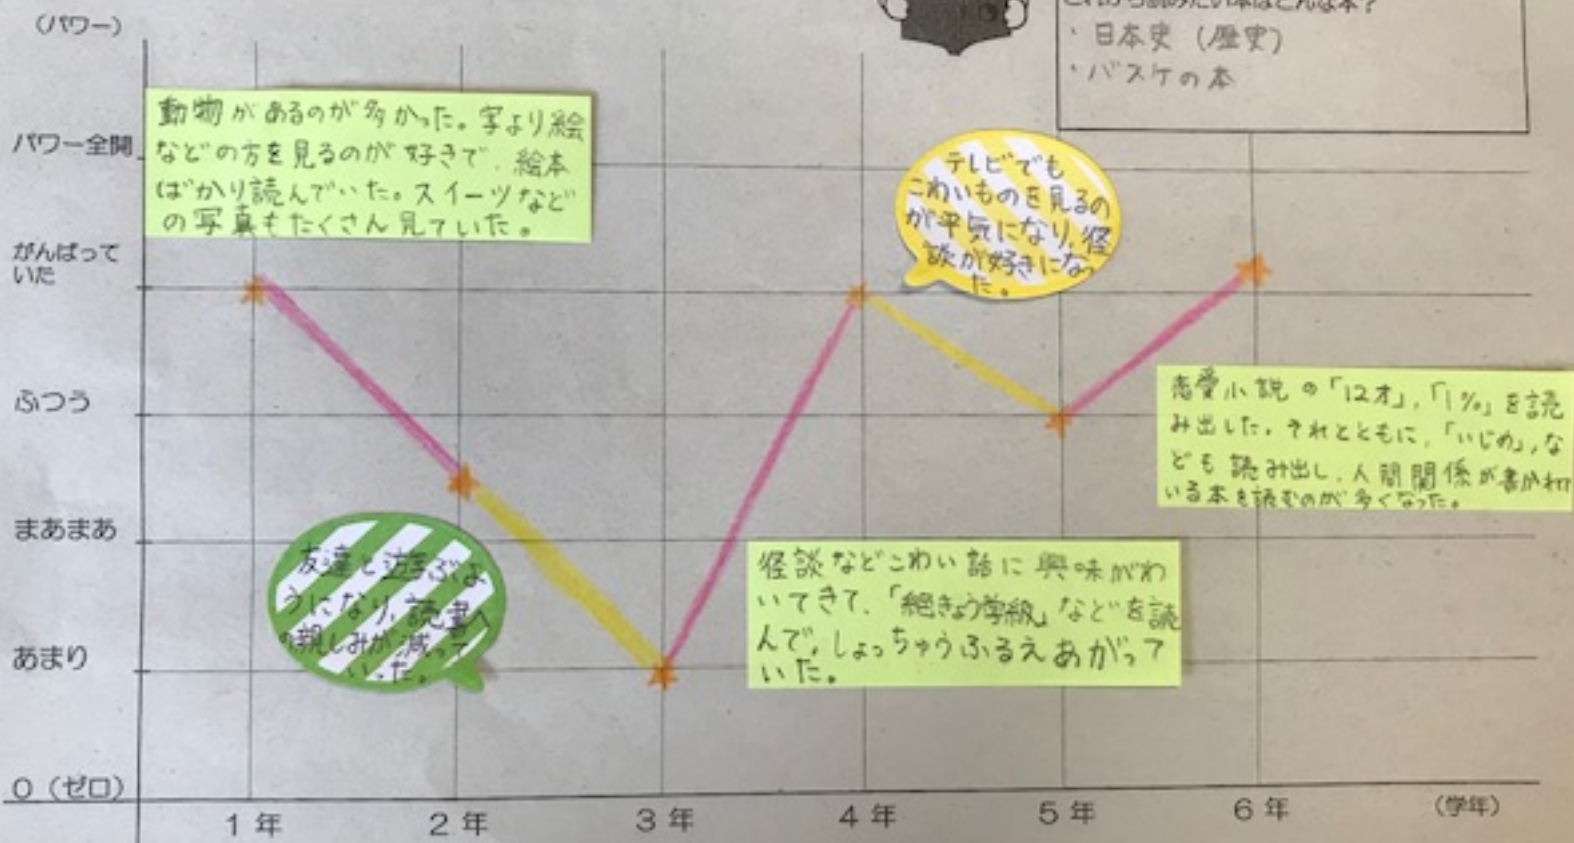 （パワー）
これから読みたい本はどんな本？
・日本史（歴史）
・バスケの本
パワー全開
がんばって
いた
ふつう
まあまあ
あまり
0（ゼロ）
動物があるのが多かった。字より絵
などの方を見るのが好きで、絵本
ばかり読んでいた。スイーツなど
の写真もたくさん見ていた。
テレビでも
こわいものを見るの
が平気になり、怪
談が好きになっ
た。
恋愛小説の「12才」,「1%」を読
み出した。それとともに、「いじめ」,な
ども読み出し、人間関係が書かれて
いる本を読むのが多くなった。
友達と遊ぶよ
うになり、読書へ
の親しみが減って
いった。
怪談などこわい話に興味がわ
いてきて、「絶きょう学級」などを読
んで、しょっちゅうふるえあがって
いた。
1年
2年
3年
4年
5年
6年
（学年）